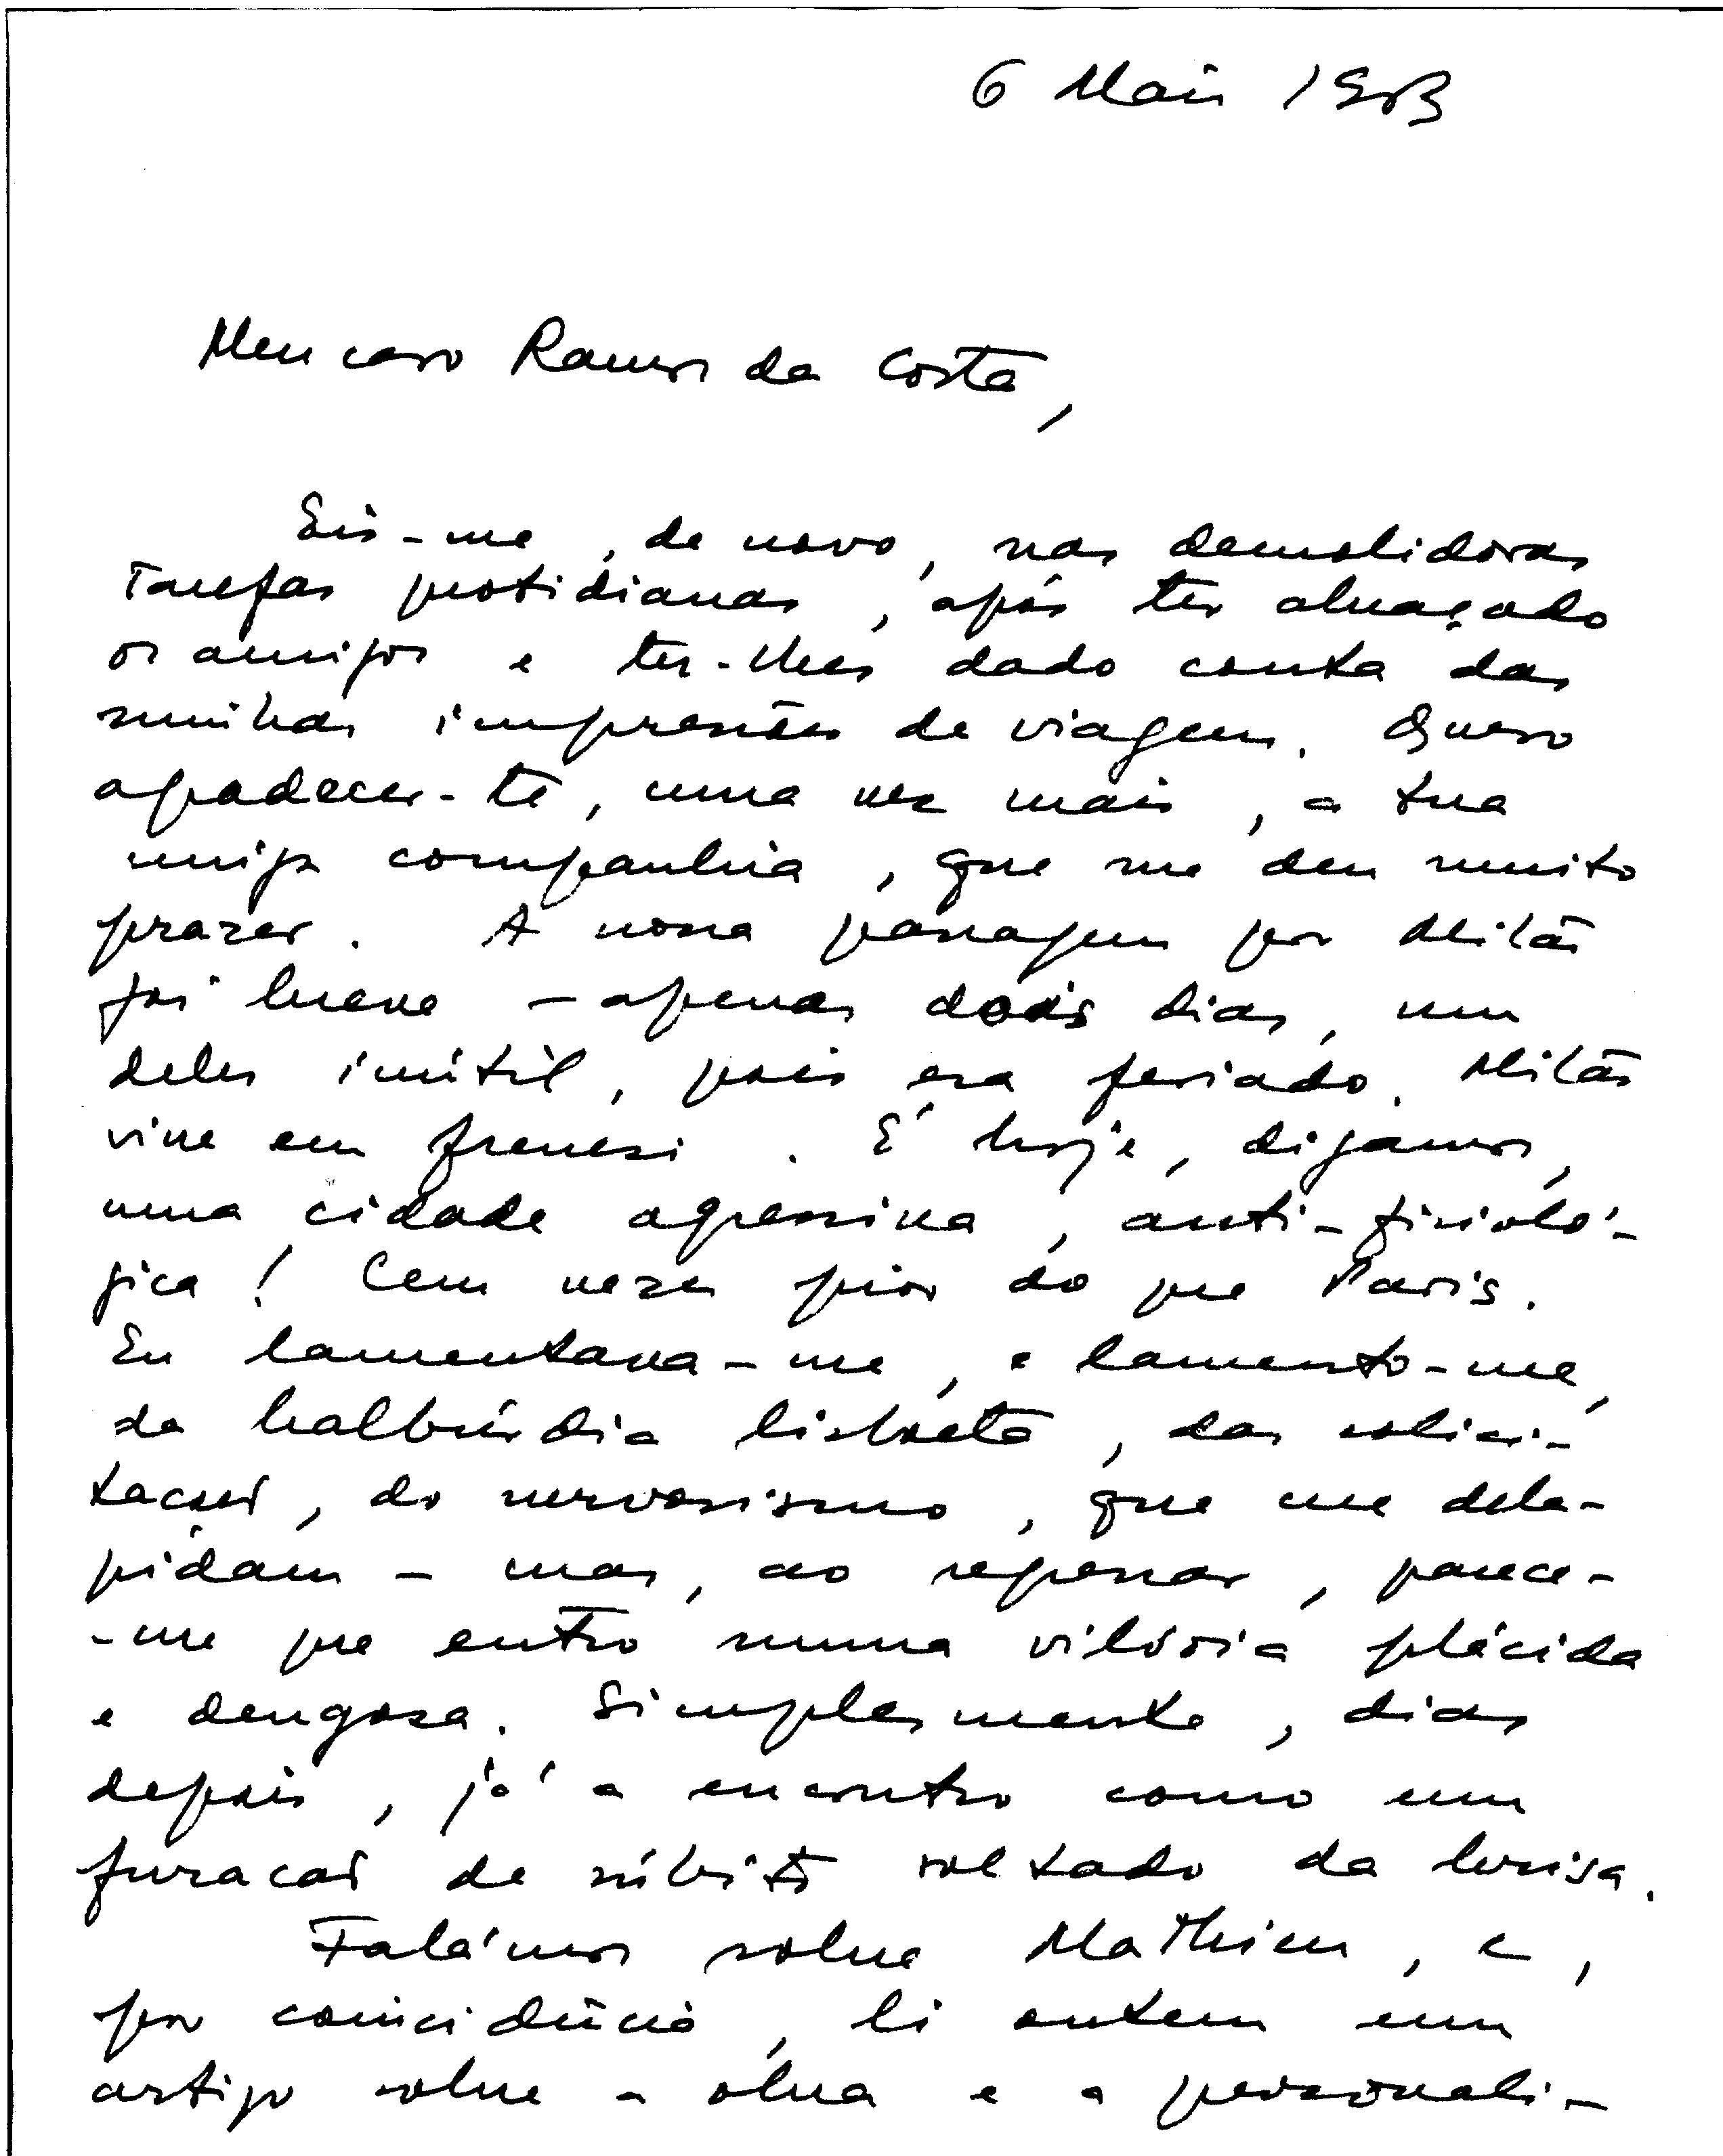 6 Maio 1983
Meu caro Ramos da Costa,
Eis-me, de novo, nas demolidoras
tarefas quotidianas, após ter abraçado
os amigos e ter-lhes dado conta das
minhas impressões de viagem. Quero
agradecer-te, uma vez mais, a tua
amiga companhia, que me deu muito
prazer. A nossa passagem por Milão
foi breve – apenas dois dias, um
deles inútil, pois era feriado. Milão
vive em frenesi. É hoje, digamos,
uma cidade agressiva, anti-fisioló-
gica! Cem vezes pior do que Paris.
Eu lamentava-me, e lamento-me,
da balbúrdia lisboeta, das solici-
tações, do nervosismo, que me dela-
pidam – mas, ao regressar, parece-
-me que entro numa vilória plácida
e dengosa. Simplesmente, dias
depois, já a encontro como um
furacão de súbito soltado da brisa.
Falámos sobre Mathieu, e,
por coincidência, li ontem um
artigo sobre a obra e a personali-